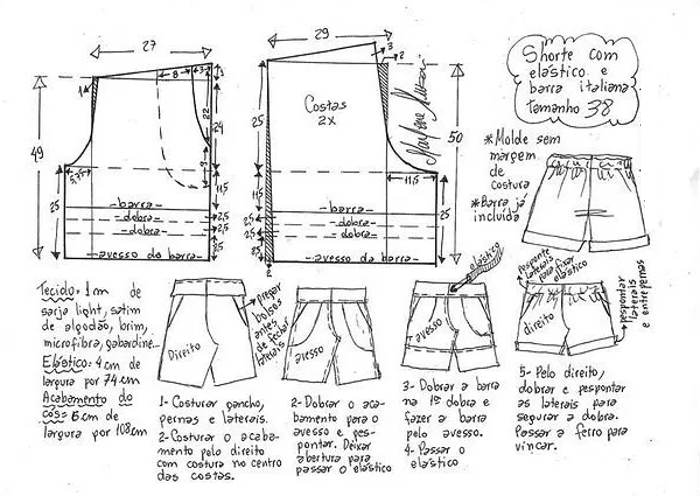 27
29
Shorte com
elástico e
barra italiana
tamanho 38
3
2
8
3
1
Costas
2X
Marlene Mukai
22
24
25
49
50
*Molde sem
margem
de
costura
*Barra já
incluída
5,35
11,5
11,5
11,5
25
25
barra
dobra
dobra
avesso da barra
2,5
2,5
2,5
barra
dobra
dobra
avesso da barra
2,5
2,5
2
Tecido: 1m de
sarja light, satim
de algodão, brim,
microfibra, gabardine...
Elástico: 4 cm de
largura por 74 cm
Acabamento do
cós = 6 cm de
largura por 108cm
Direito
prepar
bolsos
antes
de fechar
laterais
avesso
avesso
elástico
pesponte
laterais
para fixar
elástico
direito
pespontar
laterais
e entrepernas
1- Costurar gancho,
pernas e laterais.
2- Costurar o acaba-
mento pelo direito
com costura no centro
das costas.
2- Dobrar o aca-
bamento para o
avesso e pes-
pontar. Deixar
abertura para
passar o elástico
3- Dobrar a barra
na 1ª dobra e
fazer a barra
pelo avesso.
4- Passar o
elástico
5- Pelo direito,
dobrar e pespontar
as laterais para
segurar a dobra.
Passar a ferro para
vincar.